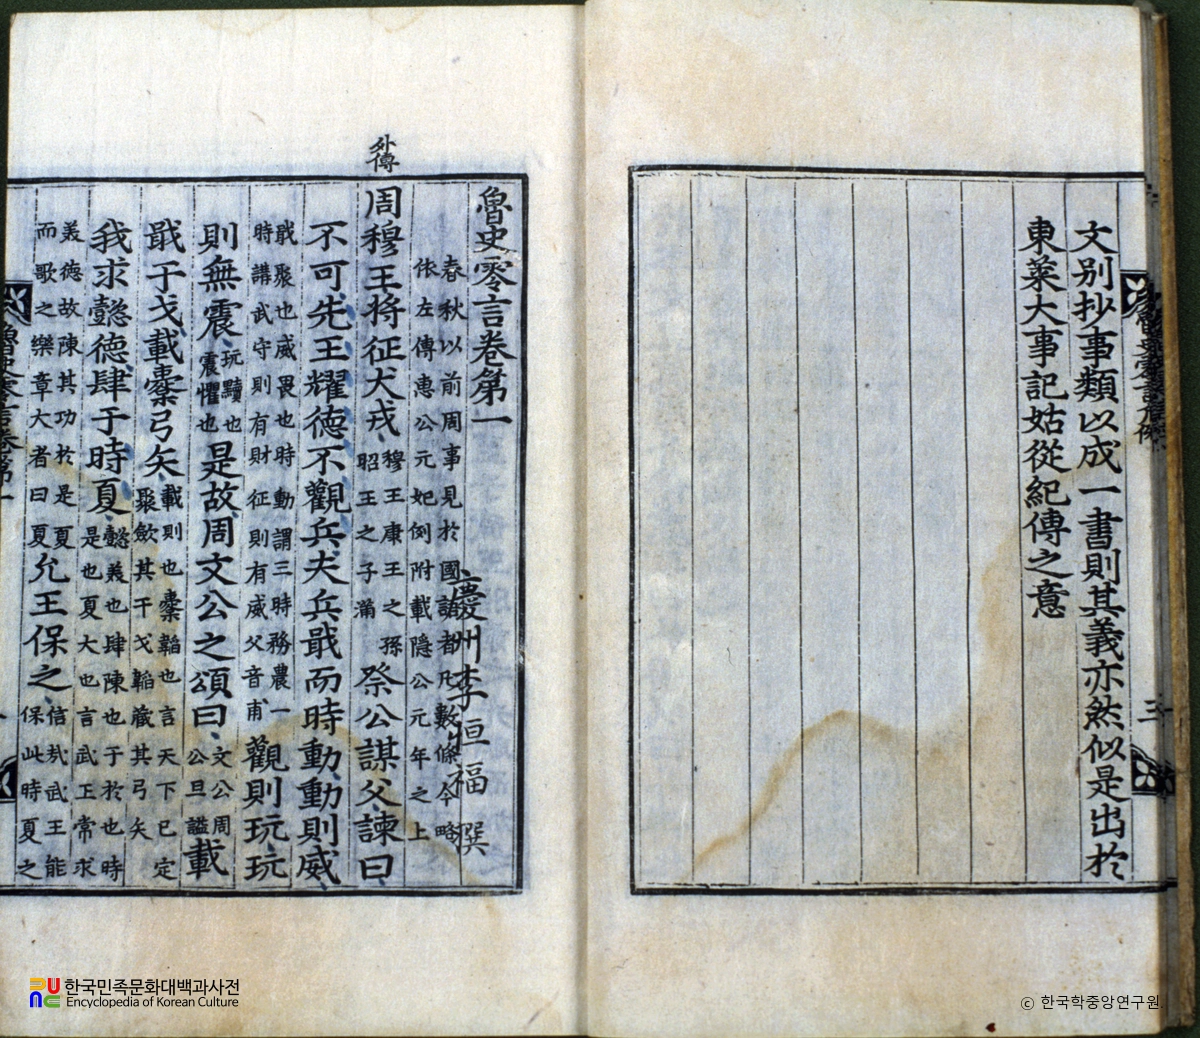 文别抄事類以成一書則其義亦然似是出於
東萊大事記姑從紀傳之意
三
魯史零言卷第一
慶州李恒福 撰
春秋以前周事見於國語者凡數條今略
依左傳惠公元妃例附載隐公元年之上
外傳
周穆王將征犬戎穆王康王之孫昭王之子滿祭公謀父諫曰
不可先王耀德不觀兵夫兵戢而時動動則威
戢聚也威畏也時動謂三時務農一時講武守則有財征則有威父音甫觀則玩玩
則無震玩黷也震懼也是故周文公之頌曰文公周公旦謚載
戢干戈載櫜弓矢載則也櫜韜也言天下已定聚歛其干戈韜蔵其弓矢
我求懿德肆于時夏懿美也肆陳也于於也時是也夏大也言武王常求
美德故陳其功於是夏而歌之樂章大者曰夏允王保之信哉武王能保此時夏之
魯史零言卷第一
한국민족문화대백과사전
Encyclopedia of Korean Culture
ⓒ 한국학중앙연구원